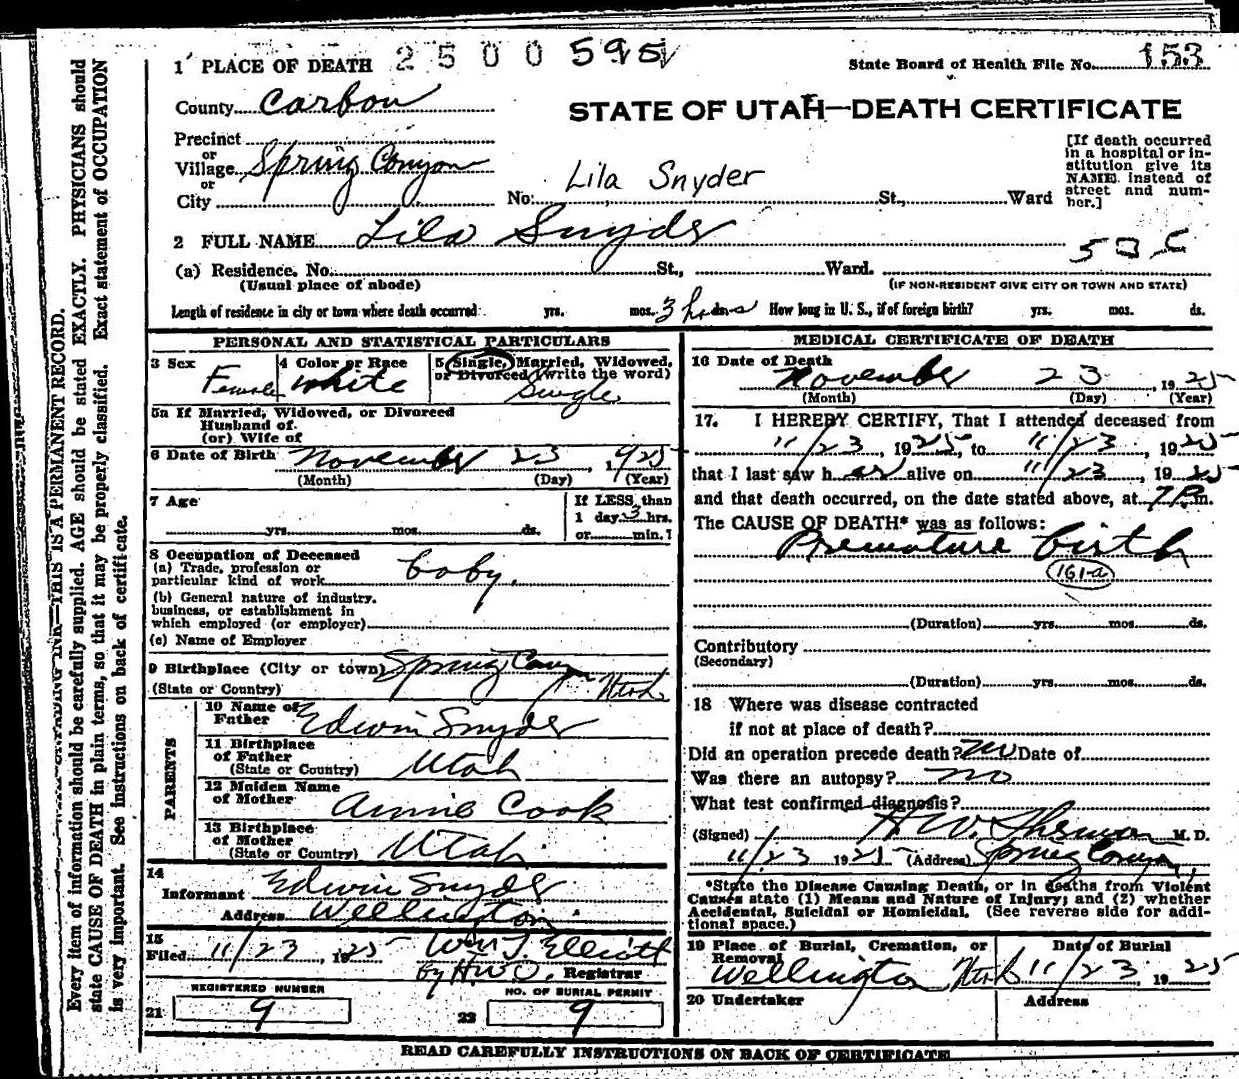 1 PLACE OF DEATH 2500595 State Board of Health File No. 153
County Carbon STATE OF UTAH—DEATH CERTIFICATE
Precinct
or
Village Spring Canyon
or
City No. Lila Snyder St., Ward
[If death occurred
in a hospital or in-
stitution give its
NAME. instead of
street and num-
ber.]
2 FULL NAME Lila Snyder
(a) Residence. No. St., Ward.
(Usual place of abode) (IF NON-RESIDENT GIVE CITY OR TOWN AND STATE)
Length of residence in city or town where death occurred yrs. mos. 3 hrs How long in U. S., if of foreign birth? yrs. mos. ds.
PERSONAL AND STATISTICAL PARTICULARS
3 Sex Female
4 Color or Race white
5 Single, Married, Widowed,
or Divorced (write the word)
Single
5a If Married, Widowed, or Divorced
Husband of.
(or) Wife of
6 Date of Birth November 23, 1925
(Month) (Day) (Year)
7 Age If LESS than
1 day 3 hrs.
yrs. mos. ds. or min.?
8 Occupation of Deceased
(a) Trade, profession or
particular kind of work baby.
(b) General nature of industry.
business, or establishment in
which employed (or employer)
(c) Name of Employer
9 Birthplace (City or town) Spring Cany
(State or Country) Utah
PARENTS
10 Name of
Father Edwin Snyder
11 Birthplace
of Father
(State or Country) Utah
12 Maiden Name
of Mother Annie Cook
13 Birthplace
of Mother
(State or Country) Utah
14
Informant Edwin Snyder
Address Wellington
15
Filed 11/23 1925 Wm J Elliott
by H.W.S. Registrar
REGISTERED NUMBER NO. OF BURIAL PERMIT
21 9 22 9
MEDICAL CERTIFICATE OF DEATH
16 Date of Death
November 23, 1925
(Month) (Day) (Year)
17. I HEREBY CERTIFY, That I attended deceased from
11/23, 1925, to 11/23, 1925
that I last saw her alive on 11/23, 1925
and that death occurred, on the date stated above, at 7 P. m.
The CAUSE OF DEATH* was as follows:
Premature birth
161-a
(Duration) yrs. mos. ds.
Contributory
(Secondary)
(Duration) yrs. mos. ds.
18 Where was disease contracted
if not at place of death?
Did an operation precede death? no Date of
Was there an autopsy? no
What test confirmed diagnosis?
(Signed) H W. Sherman M. D.
11/23 1925 (Address) Spring Canyon
*State the Disease Causing Death, or in deaths from Violent
Causes state (1) Means and Nature of Injury; and (2) whether
Accidental, Suicidal or Homicidal. (See reverse side for addi-
tional space.)
19 Place of Burial, Cremation, or Date of Burial
Removal
Wellington Utah 11/23 1925
20 Undertaker Address
READ CAREFULLY INSTRUCTIONS ON BACK OF CERTIFICATE
THIS IS A PERMANENT RECORD.
Every item of information should be carefully supplied. AGE should be stated EXACTLY. PHYSICIANS should
state CAUSE OF DEATH in plain terms, so that it may be properly classified. Exact statement of OCCUPATION
is very important. See instructions on back of certificate.